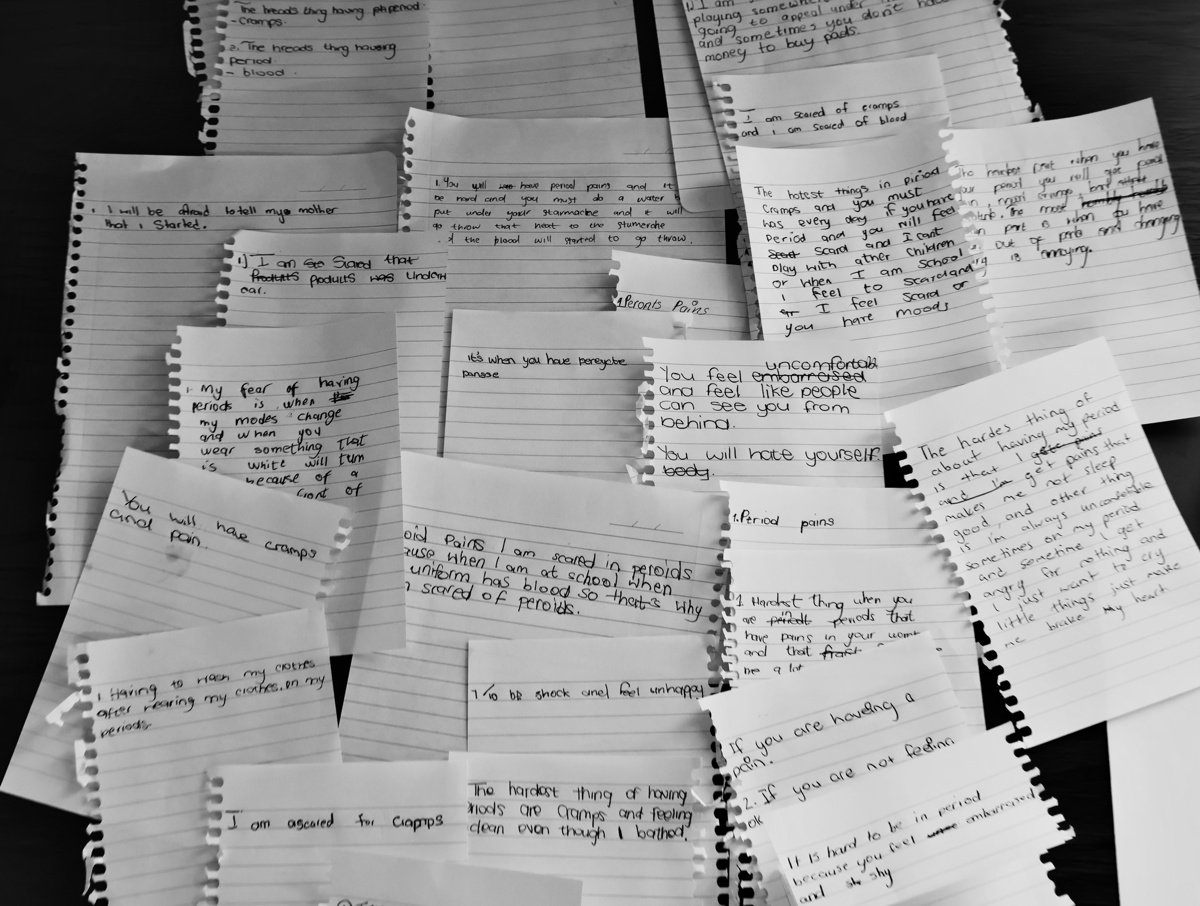 The breads thing having ph period
-cramps.
2. The breads thing having
period.
- blood.
1) I am
playing somewh
going to appeal under
and sometimes you don't ha
money to buy pads.
I am scared of cramps
and i am scared of blood
. I will be afraid to tell mys mother
that i started.
1. You will have period pains and it
be hard and you must do a water b
put under your starmache and it will
go throw that next to the stumerche
if the blood will started to go throw.
The hotest things in piriod
cramps and you must
was every day if you have
period and you will feel
scard and I can't
play with ather children
or when I am school
i feel to scard and
or I feel scard or
you have moods
The hardest part when you have
your period you
mood change,
the most
part is when you have
out of pads and changing
is annoying.
1) I am So Siared that
Products products was Undern
ear.
1Peronts Pains
it's when you have pereyobe
pansse
uncomfortab
You feel embarrased
and feel like people
can see you from
behind.
You will hate yourself
body.
1. My fear of having
periods is when the
my modes change
and when you
wear something that
is white will turn
because of a
front of
The hardes thing of
about having my period
is that I gets pains
and im get pains that
makes me not sleep
good, and other thing
is i'm always uncomfetable
sometimes on my period
and sometime I get
angry for nothing and
I just want to cry
little things just make
me brake my heart
You will have cramps
and pain.
oid Pains I am scared in peroids
ause when I am at school when
uniform has blood so that's why
scared of peroids.
1.Period pains
1 Hardest thing when you
are periodt periods that
have pains in your womb
and that
me a lot
1 Having to wash my clothes
after wearing my clothes, on my
periods
1 To be shock and feel unhappy
If you are haveing a
pain.
2. If you are not feelinn
ok
I am ascared for cramps
The hardest thing of having
riods are cramps and feeling
clean even though I bathed.
It is hard to be in period
because you feel embarrased
and sh shy